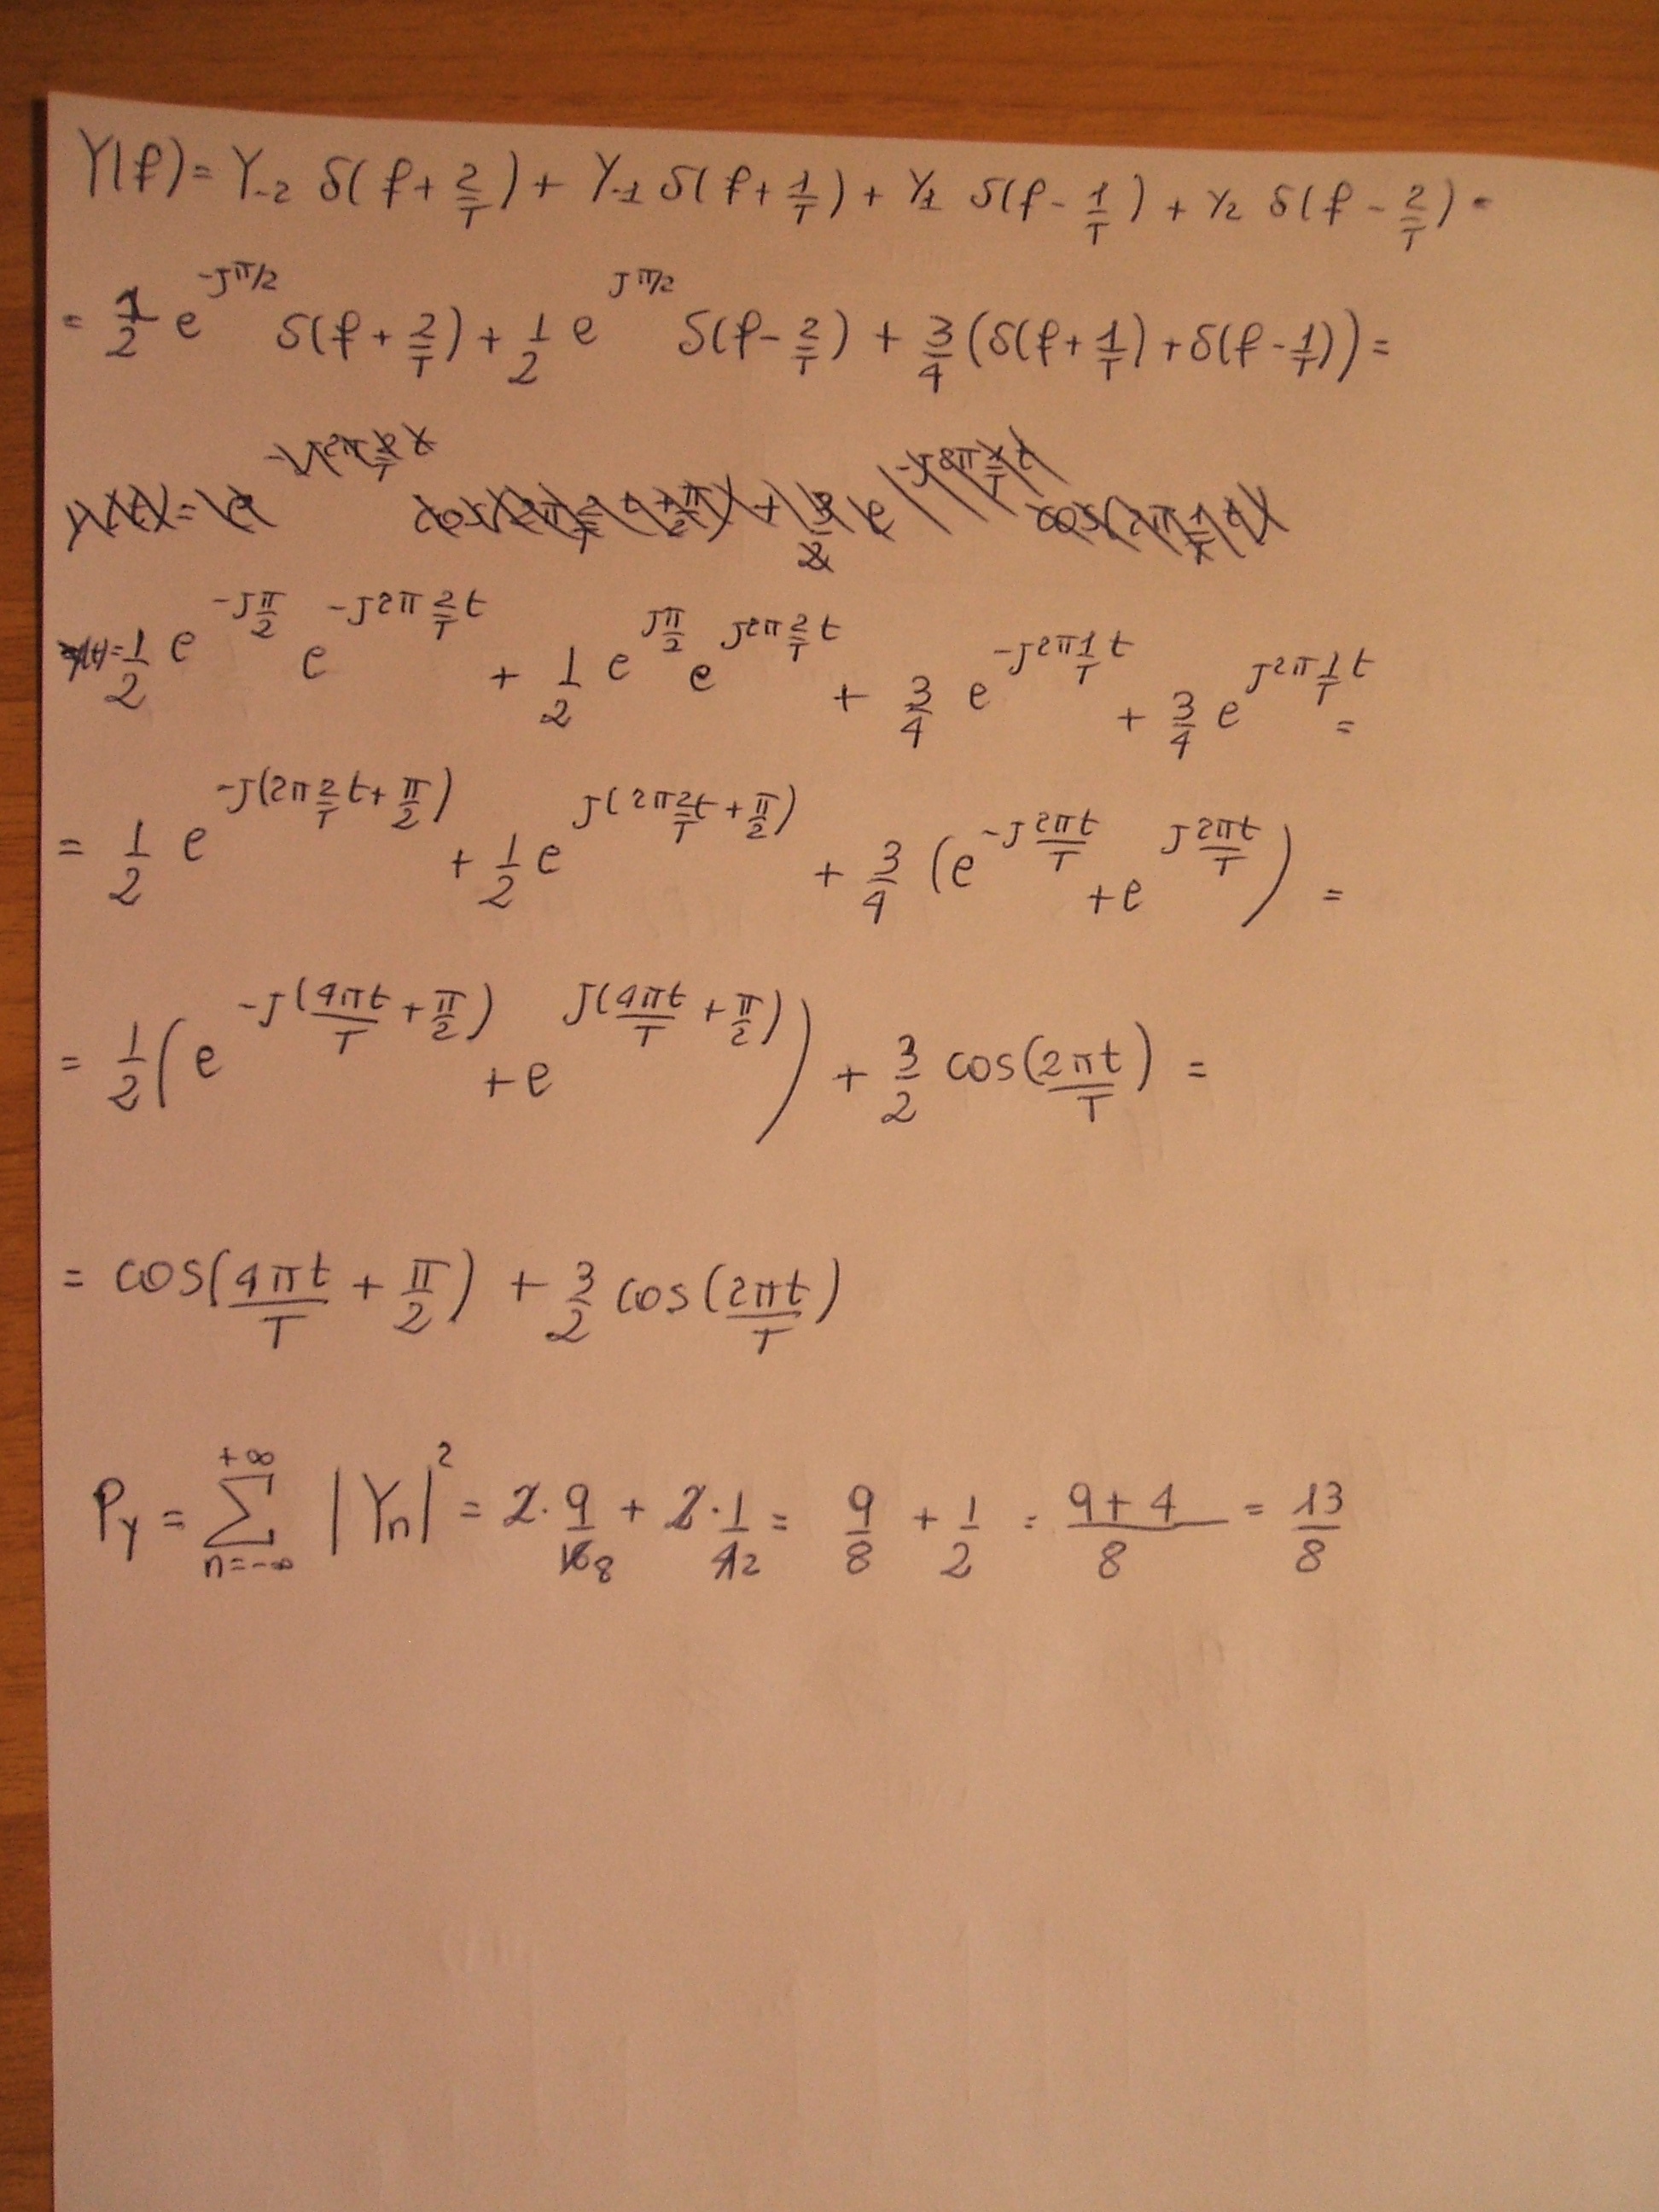 Y(f) = Y-2 δ(f + 2/T) + Y-1 δ(f + 1/T) + Y1 δ(f - 1/T) + Y2 δ(f - 2/T) =
= 1/2 e^(-Jπ/2) δ(f + 2/T) + 1/2 e^(Jπ/2) δ(f - 2/T) + 3/4 (δ(f + 1/T) + δ(f - 1/T)) =
y(t) = 1/2 e^(-Jπ/2) e^(-J2π 2/T t) + 1/2 e^(Jπ/2) e^(J2π 2/T t) + 3/4 e^(-J2π 1/T t) + 3/4 e^(J2π 1/T t) =
= 1/2 e^(-J(2π 2/T t + π/2)) + 1/2 e^(J(2π 2/T t + π/2)) + 3/4 (e^(-J 2πt/T) + e^(J 2πt/T)) =
= 1/2 (e^(-J(4πt/T + π/2)) + e^(J(4πt/T + π/2))) + 3/2 cos(2πt/T) =
= cos(4πt/T + π/2) + 3/2 cos(2πt/T)
Py = Σ_(n=-∞)^(+∞) |Yn|^2 = 2 · 9/16 8 + 2 · 1/4 2 = 9/8 + 1/2 = (9+4)/8 = 13/8